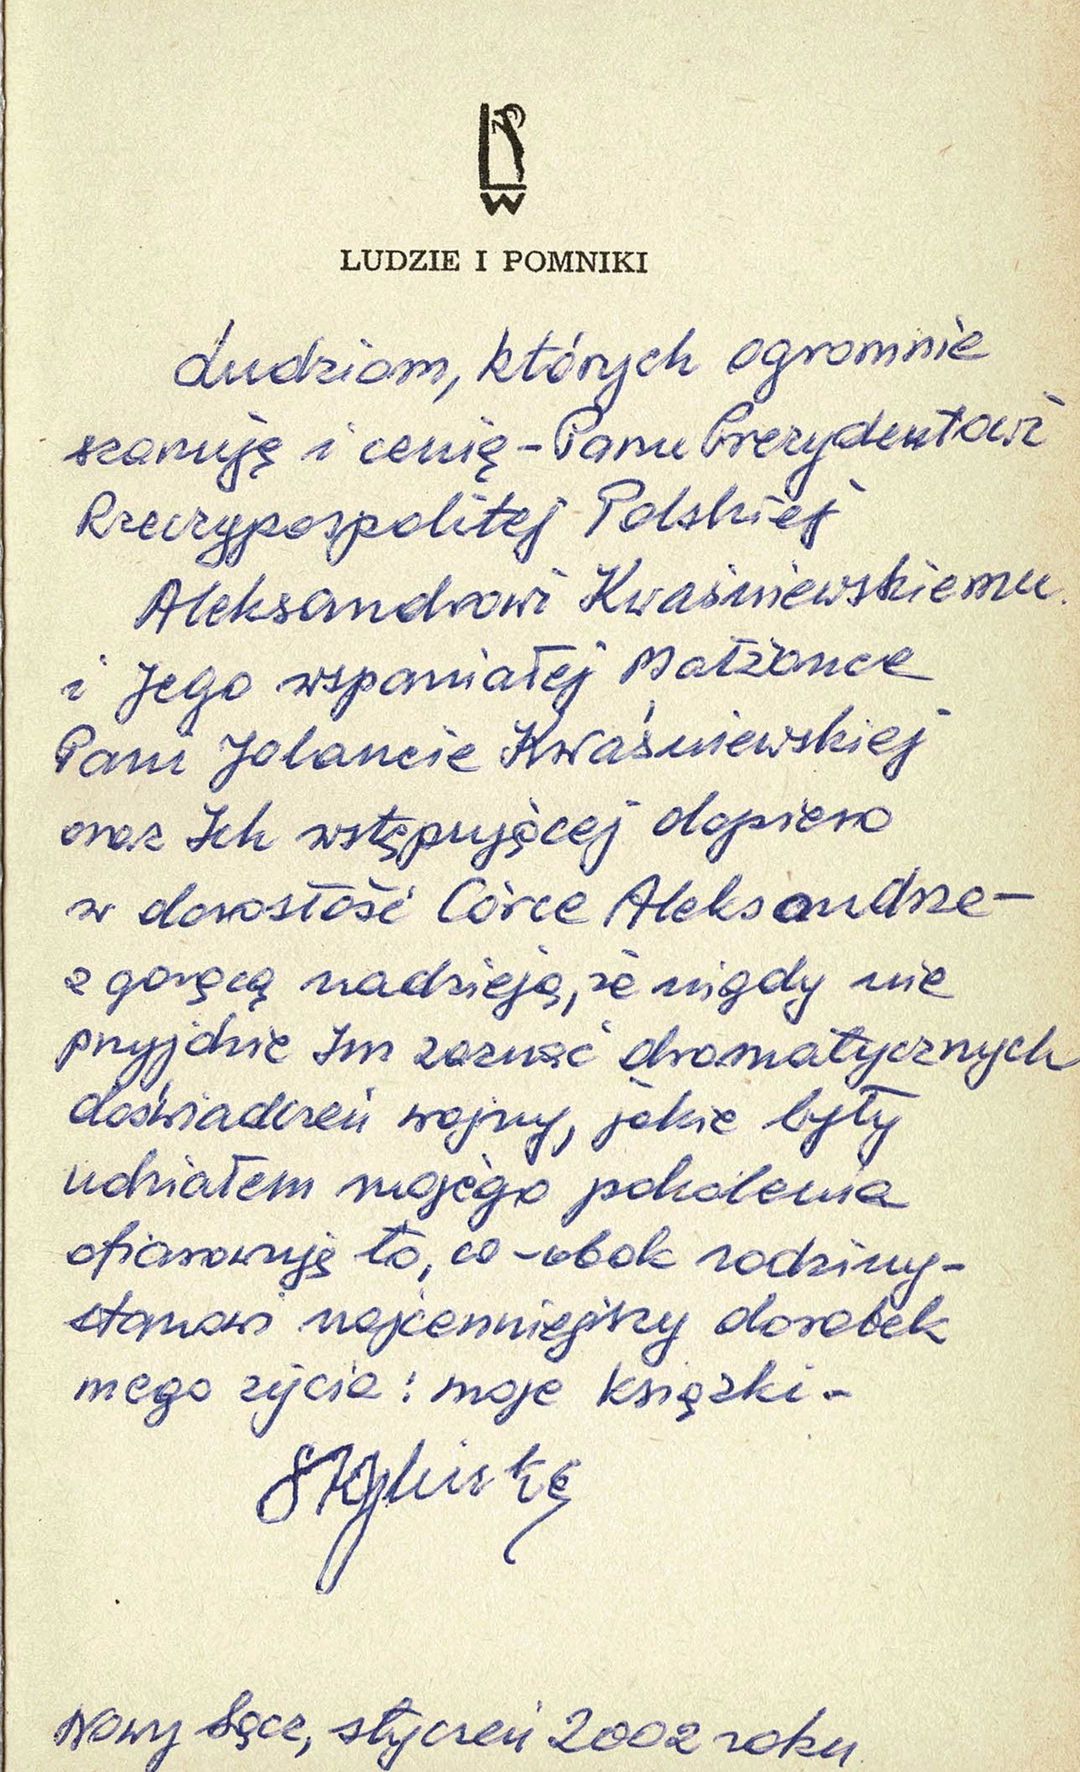 LW
LUDZIE I POMNIKI
Ludziom, których ogromnie
szanuję i cenię - Panu Prezydentowi
Rzeczypospolitej Polskiej
Aleksandrowi Kwaśniewskiemu
i Jego wspaniałej Małżonce
Pani Jolancie Kwaśniewskiej
oraz Ich wstępującej dopiero
w dorosłość Córce Aleksandrze -
z gorącą nadzieją, że nigdy nie
przyjdzie Im zaznać dramatycznych
doświadczeń wojny, jakie były
udziałem mojego pokolenia
ofiarowuję to, co - obok rodziny -
stanowi najcenniejszy dorobek
mego życia: moje książki -
Nowy Sącz, styczeń 2002 roku